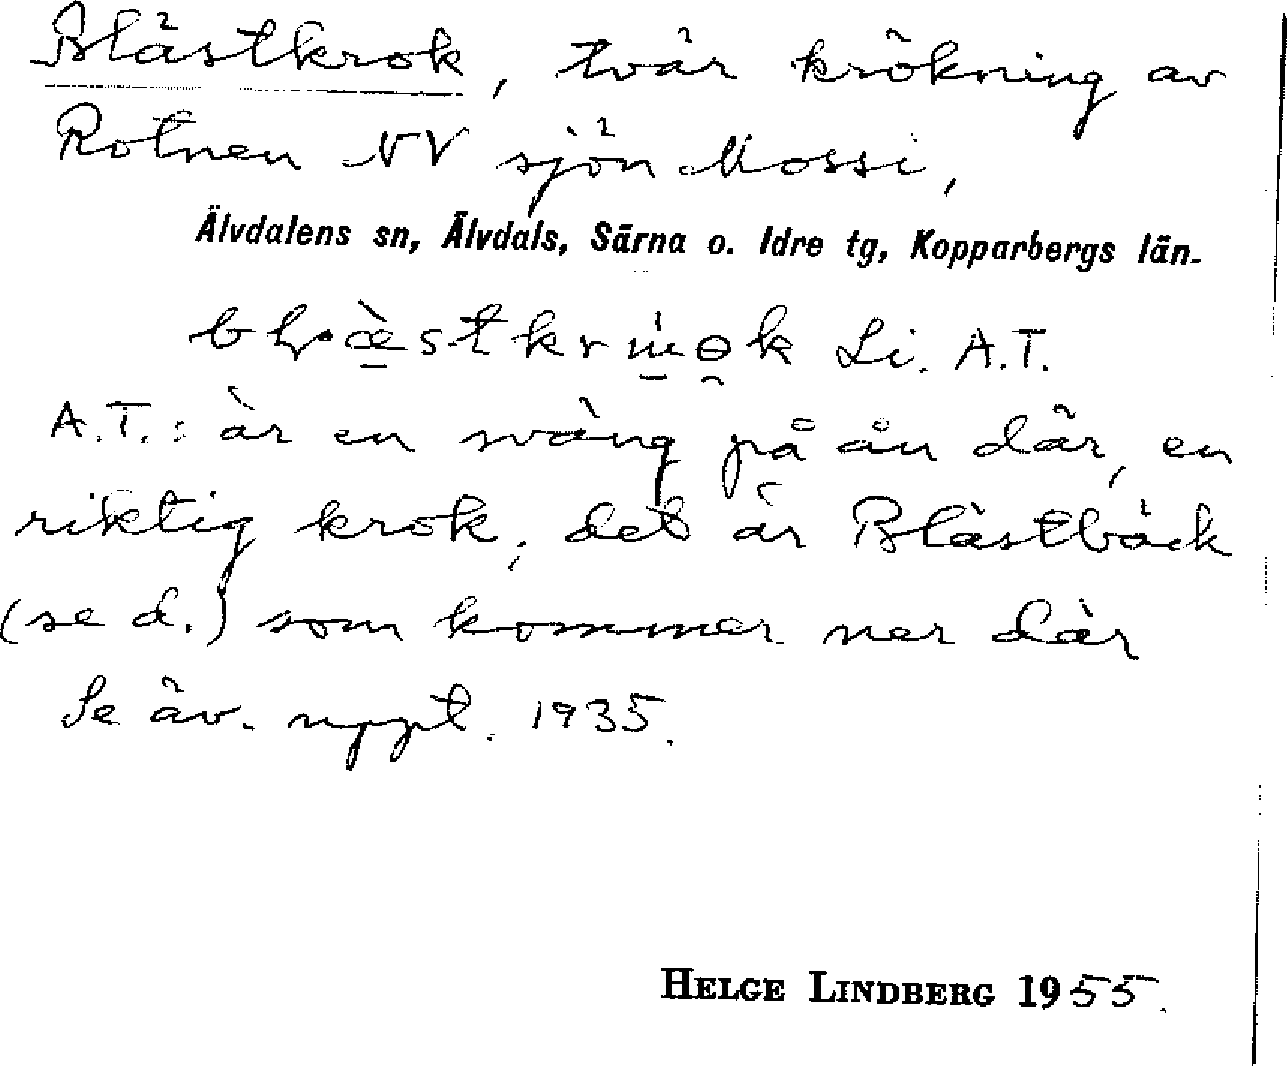 Blästkrok, tvär krökning av
Rotnen NV sjön Mossi,
Älvdalens sn, Älvdals, Särna o. Idre tg, Kopparbergs län.
Li. A.T.
A.T.: är en sväng på ån där, en
riktig krok, det är Blästbäck
(se d.) som kommer ner där
Se äv. uppt. 1935.
HELGE LINDBERG 1955.